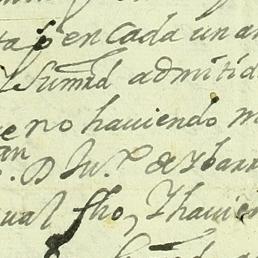 en cada un
Sumd admitid
no haviendo m
D Ju.º de Ybarr
ual fho, Y havien